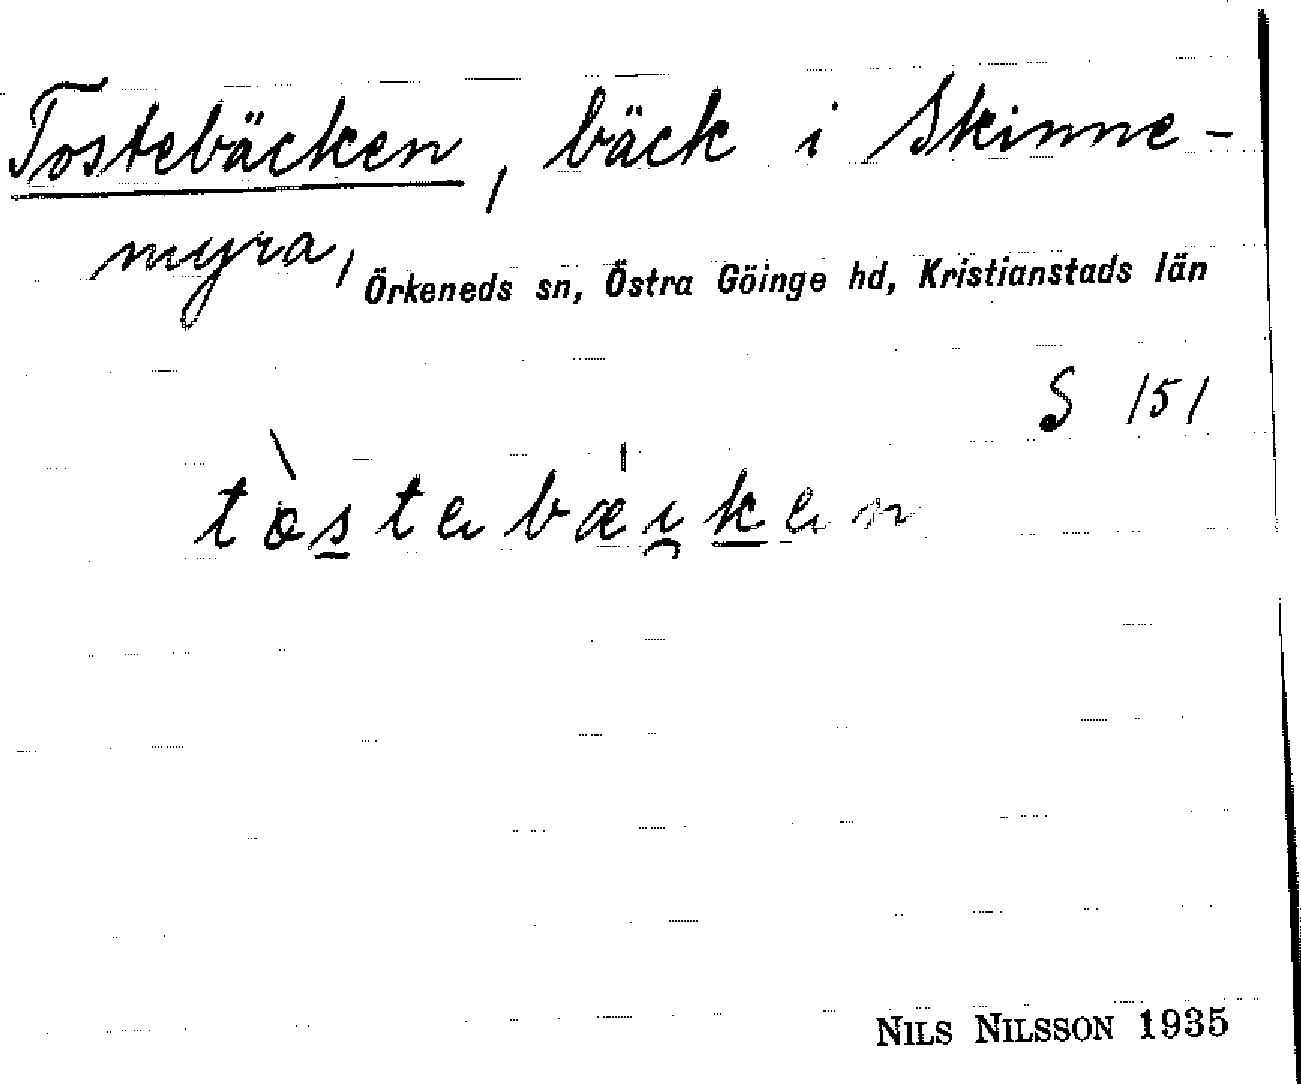 Tostebäcken, bäck i Skinne-
myra, Örkeneds sn, Östra Göinge hd, Kristianstads län
S 151
tòstebæi̯ken
NILS NILSSON 1935